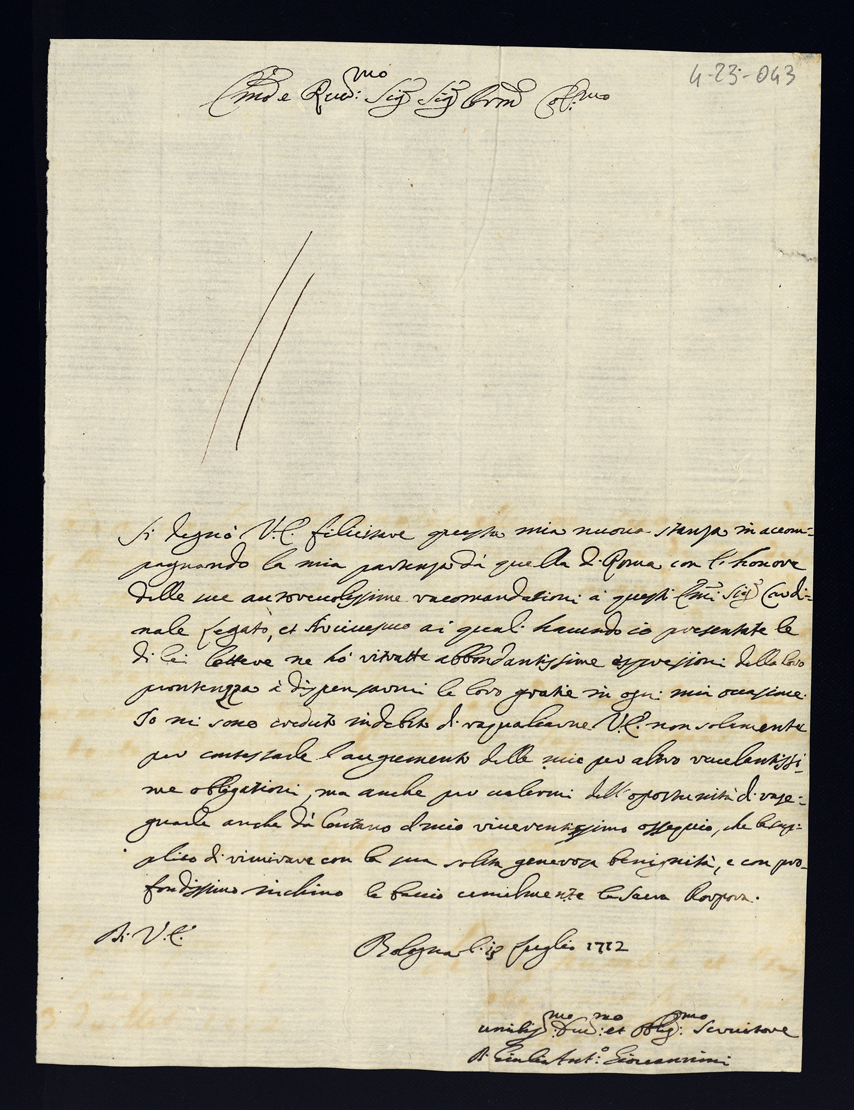 4-23-043
Em̃o e Reu:mo Sig.r Sig.r Pron Col:mo
Si degnò V.E. felicitare questa mia nuova stanza in accom=
pagnando la mia partenza da quella di Roma con l'honore
delle sue autorevolissime racomandationi à questi Em̃i Sig.ri Cardi=
nale Legato, et Arcivescovo ai quali havendo io presentate le
di lei lettere ne hò ritratte abbondantissime espressioni della loro
prontezza à dispensarmi le loro gratie in ogni mia occasione.
Io mi sono creduto in debito di ragualiarne V.E. non solamente
per contestarle l'augumento delle mie per altro
me obligationi, ma anche per valermi dell'oportunità di rasse=
gnarle anche dà lontano il mio riverentissimo ossequio, che la sup=
plico di rimirare con la sua solita generosa benignità, e con pro=
fondissimo inchino le baccio umilmente la Sacra Porpora.
Di V.E.
Bologna li 13 Luglio 1712
umilis:mo Diu:mo et oblig:mo Servitore
Ant.o Giovannini